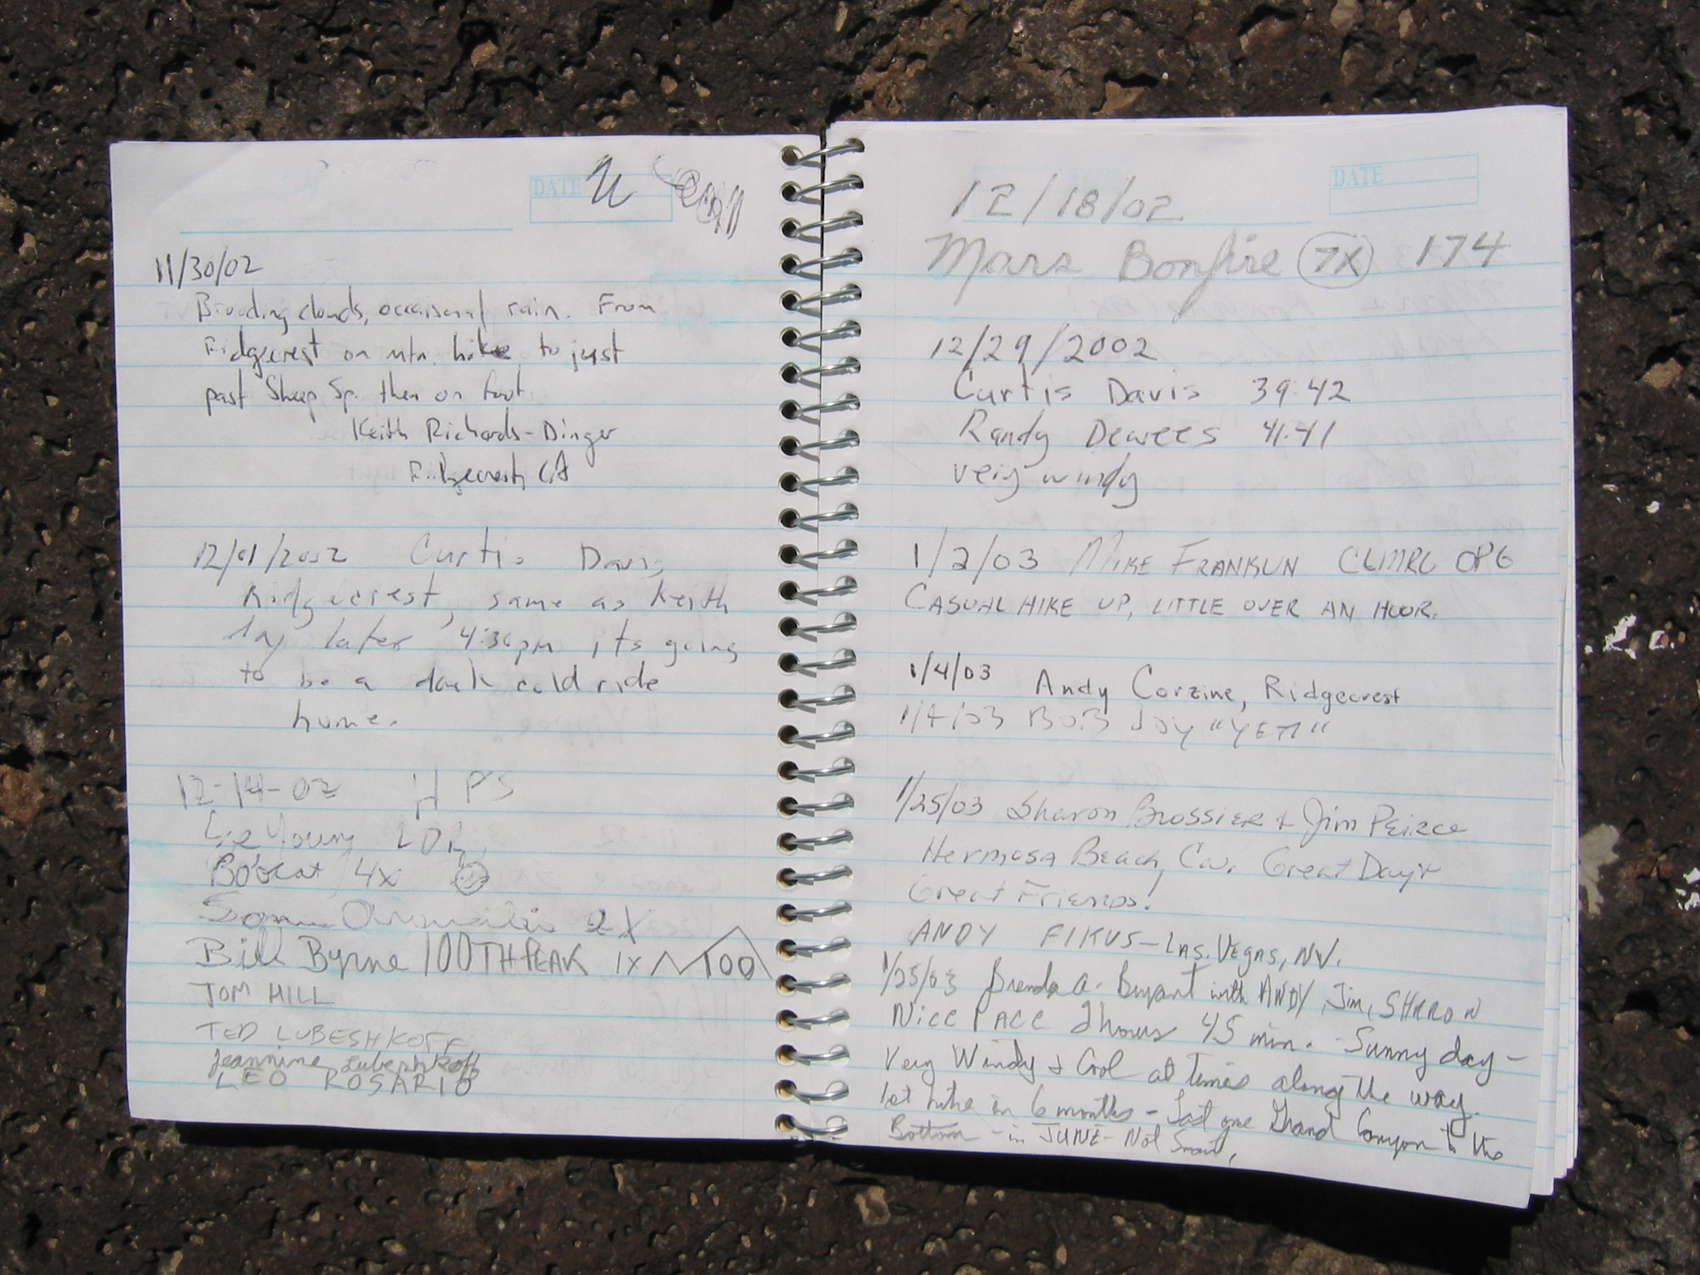 DATE
11/30/02
Brooding clouds, occaisonal rain. From
Ridgecrest on mtn. bike to just
past Sheep Sp. then on foot.
Keith Richards-Dinger
Ridgecrest, CA
12/01/2002 Curtis Davis
Ridgecrest, same as Keith
later 4:30pm its going
to be a dark cold ride
home.
12-14-02 HPS
Young LDR
Bobcat 4x
2X
Bill Byrne 100TH PEAK 1X 100
TOM HILL
TED LUBESHKOFF
Jeannine Lubeshkoff
LEO ROSARIO
DATE
12/18/02
Mars Bonfire 7X 174
12/29/2002
Curtis Davis 39:42
Randy Dewees 41:41
very windy
1/2/03 MIKE FRANKLIN CLMRG OPG
CASUAL HIKE UP, LITTLE OVER AN HOUR.
1/4/03 Andy Corzine, Ridgecrest
1/4/03 BOB JOY "YETI"
1/25/03 Sharon BROSSIER + Jim PEIRCE
Hermosa Beach, Ca. Great Day +
Great Friends!
ANDY FIKUS - LAS VEGAS, NV.
1/25/03 Brenda A. Bryant with ANDY, Jim, SHARON
Nice PACE 2 hours 45 min. - Sunny day -
Very Windy & Cool at times along the way.
1st hike in 6 months - Last one Grand Canyon to the
Bottom - in JUNE - Not Smart,